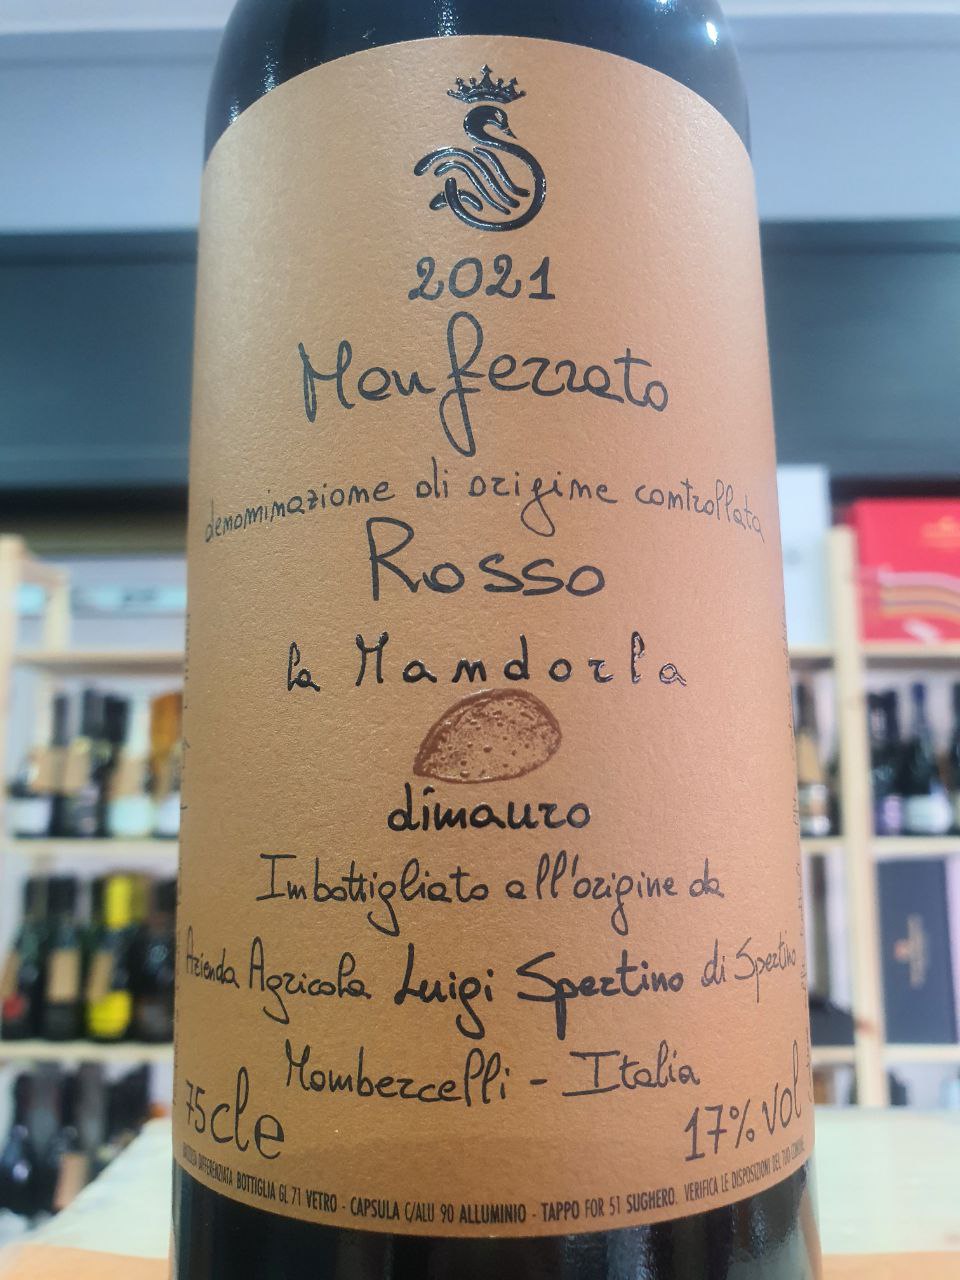 2021
Monferrato
denominazione di origine controllata
Rosso
la Mandorla
dimauro
Imbottigliato all'origine da
Azienda Agricola Luigi Spertino di Spertino
Mombercelli - Italia
75cl e
17% vol
DIFFERENZIATA BOTTIGLIA GL 71 VETRO - CAPSULA C/ALU 90 ALLUMINIO - TAPPO FOR 51 SUGHERO. VERIFICA LE DISPOSIZIONI DEL TUO COMUNE.